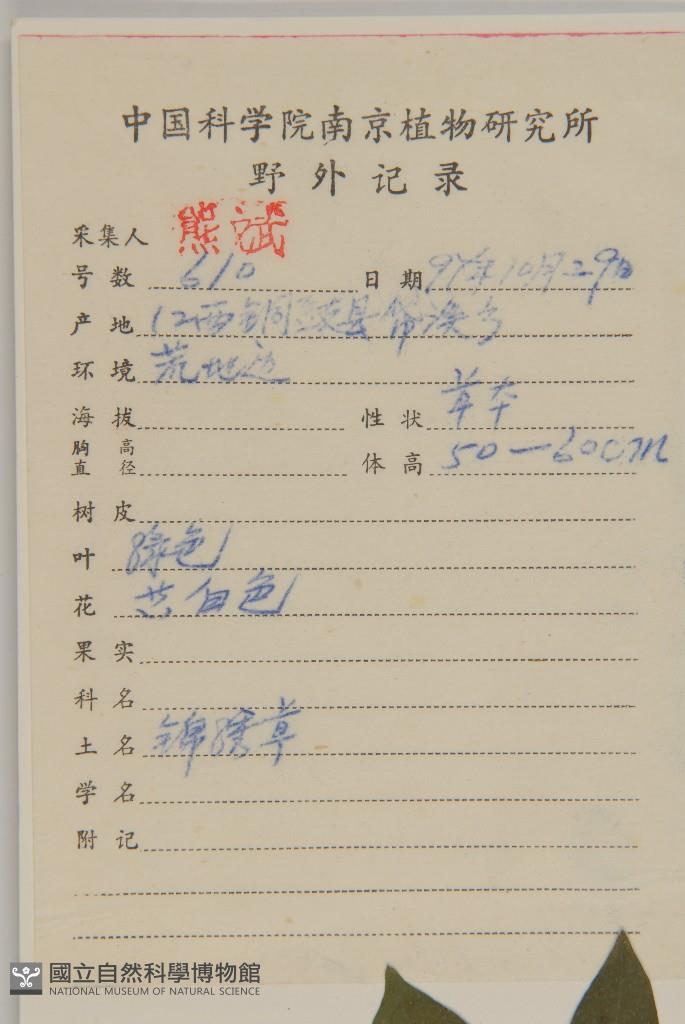 中国科学院南京植物研究所
野外记录
采集人 熊斌
号数 610 日期 97年10月29日
产地 江西铜鼓县带溪乡
环境 荒地边
海拔 性状 草本
胸高直径 体高 50—60cm
树皮
叶 绿色
花 黄白色
果实
科名
土名 锦绣草
学名
附记
國立自然科學博物館
NATIONAL MUSEUM OF NATURAL SCIENCE